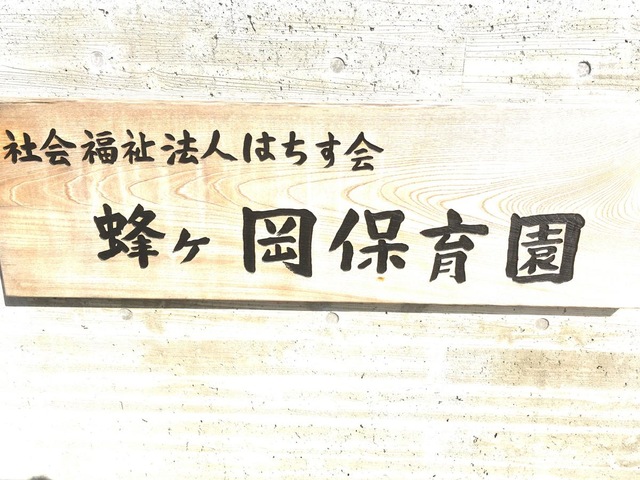 社会福祉法人はちす会
蜂ヶ岡保育園